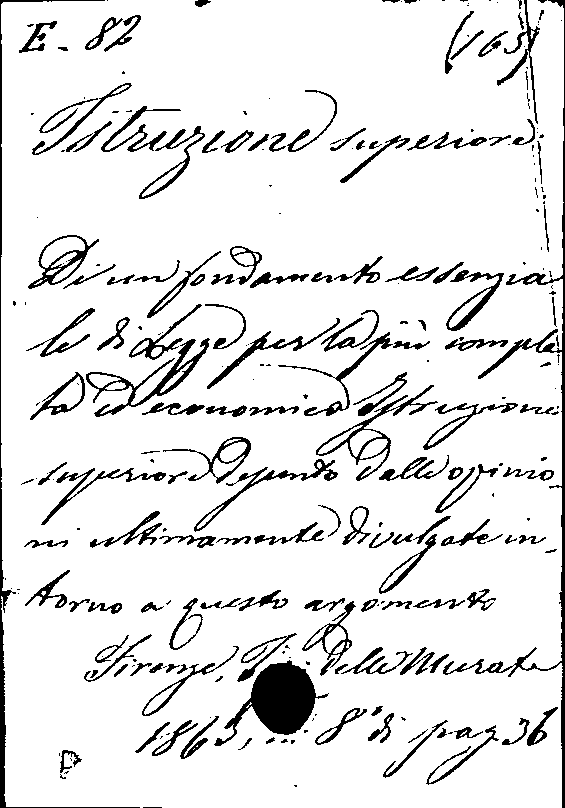 E. 82 (163)
Istruzione superiore
Di un fondamento essenzia
le di Legge per la più comple-
ta ed economica Istruzione
superiore desunto dalle opinio-
ni ultimamente divulgate in-
torno a questo argomento
Firenze, Tip. delle Murate
1863, in 8° di pag 36